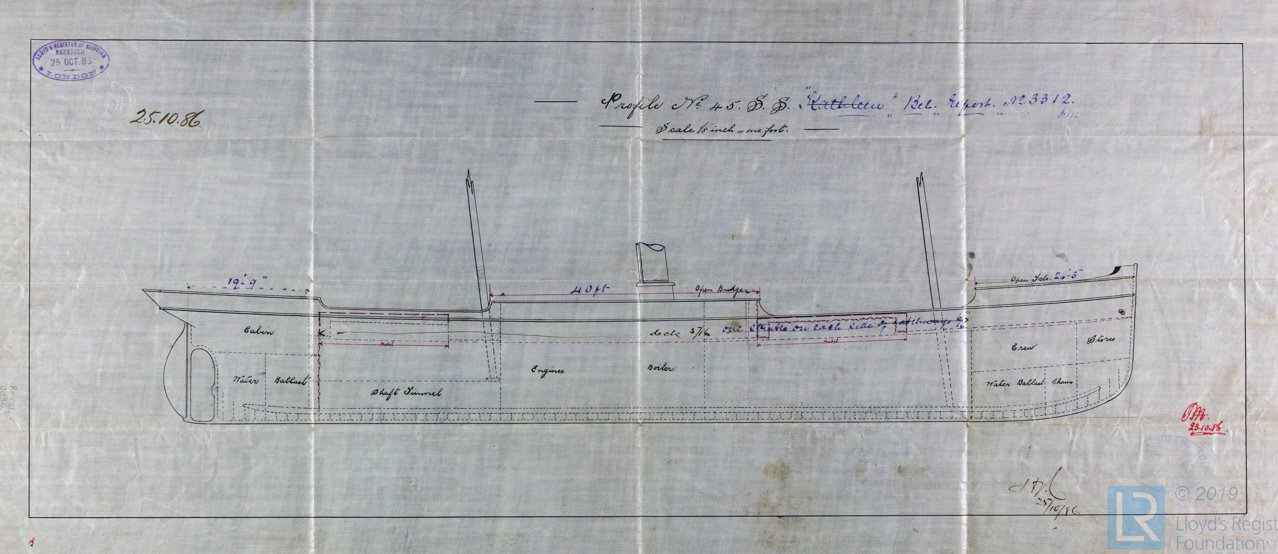 LLOYD'S REGISTER OF SHIPPING
RECEIVED
25 OCT. 86
LONDON
25.10.86
Profile No 45. S.S. "Kathleen" Bel. Report. No 3312.
Scale ⅛ inch = one foot.
19'-9"
40 ft
Open Bridge
Open Fcle. 20'-3"
Cabin
deck 5/16 one strake on each side of hatchways
Crew
Stores
Engines
Boiler
Water Ballast
Shaft Tunnel
Water Ballast
Chains
25.10.86.
25/10/86
LR
© 2019
Lloyd's Regist
Foundation